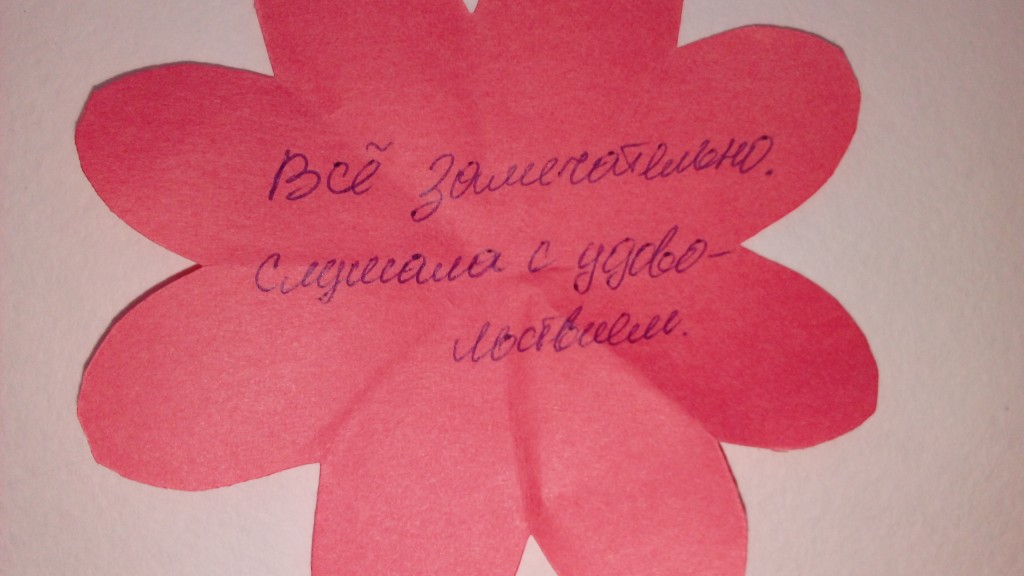 Всё замечательно.
Слушала с удово-
льствием.